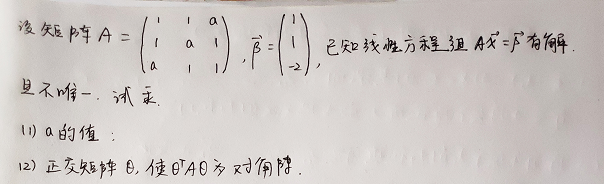 设矩阵 A = ( 1 1 a ; 1 a 1 ; a 1 1 ), β⃗ = ( 1 ; 1 ; -2 ), 已知线性方程组 Ax⃗=β⃗ 有解.
且不唯一. 试求.
(1) a的值:
(2) 正交矩阵 θ, 使 θᵀAθ 为对角阵.